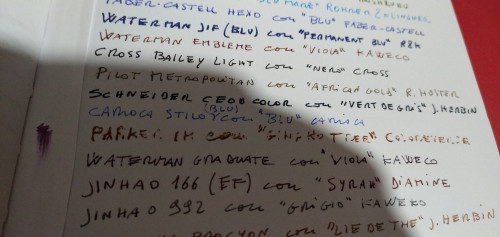 FABER-CASTELL HEXO con "BLU" FABER-CASTELL
WATERMAN JIF (BLU) con "PERMANENT BLU" R&K
WATERMAN EMBLEME con "VIOLA" KAWECO
CROSS BAILEY LIGHT con "NERO" CROSS
PILOT METROPOLITAN con "AFRICAN GOLD" R. HOSTER
SCHNEIDER CEOD COLOR con "VERT DE GRIS" J. HERBIN
(BLU)
CARIOCA STILO con "BLU" CARIOCA
PARKER IM con TREE"
WATERMAN GRADUATE con "VIOLA" KAWECO
JINHAO 166 (EF) con "SYRAH" DIAMINE
JINHAO 992 con "GRIGIO" KAWEKO
con "LIE DE THE" J. HERBIN